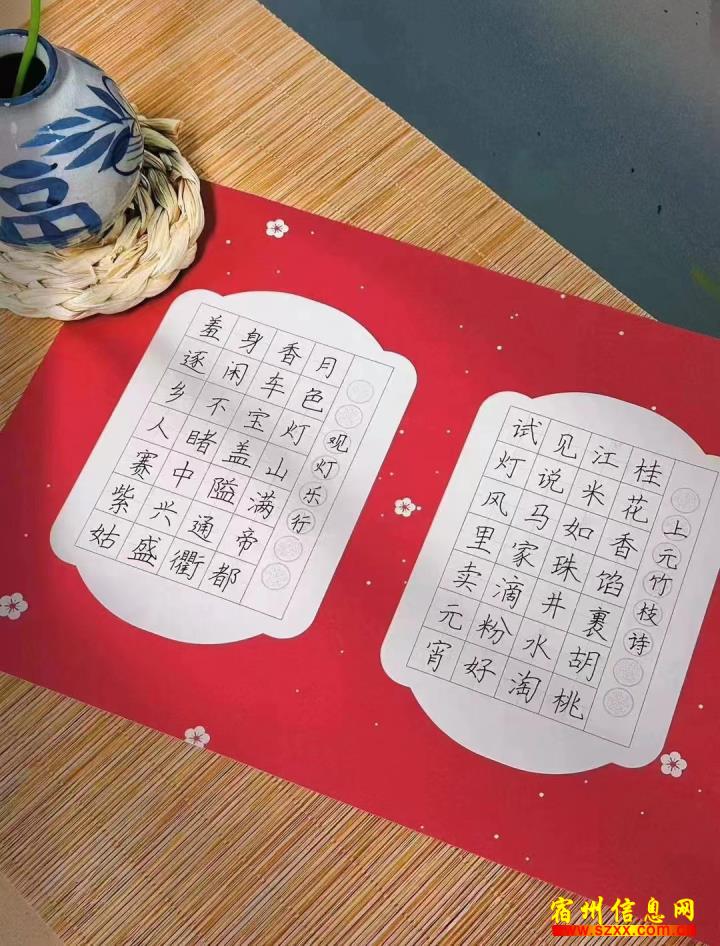 上元竹枝诗
桂花香馅裹胡桃
江米如珠井水淘
见说马家滴粉好
试灯风里卖元宵
观灯乐行
月色灯山满帝都
香车宝盖隘通衢
身闲不睹中兴盛
羞逐乡人赛紫姑
宿州信息网
www.szxx.com.cn